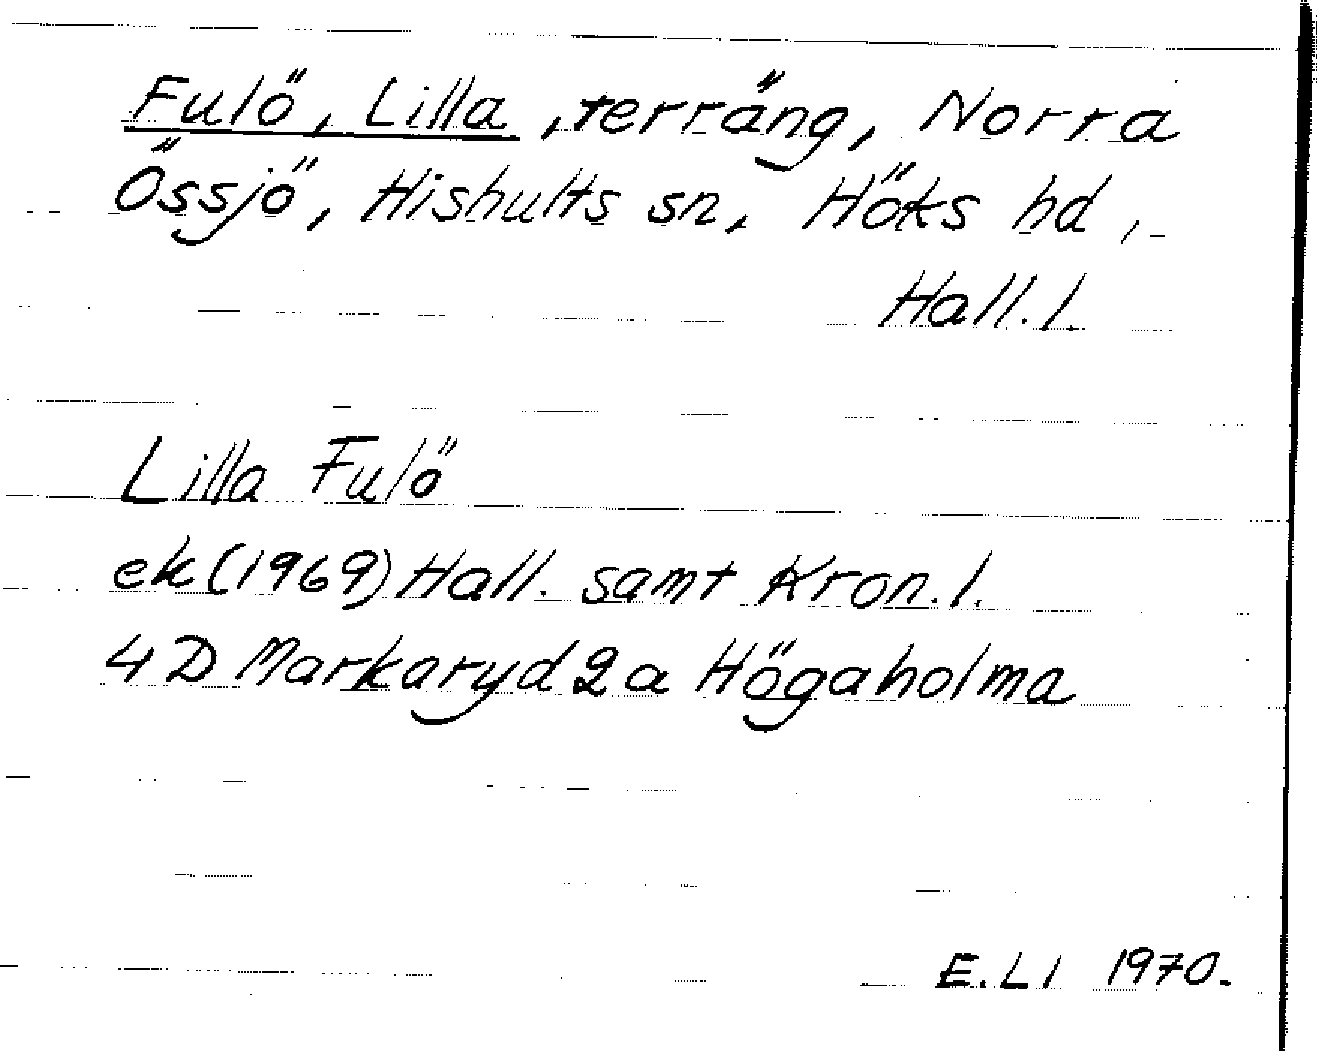 Fulö, Lilla, terräng, Norra
Össjö, Hishults sn, Höks hd,
Hall. l.
Lilla Fulö
ek (1969) Hall. samt Kron. l.
4 D Markaryd 2 a Högaholma
E. LI 1970.